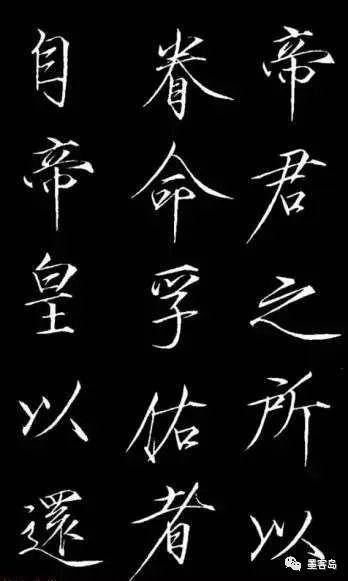 帝君之所以
眷命孚佑者
自帝皇以還
墨客岛